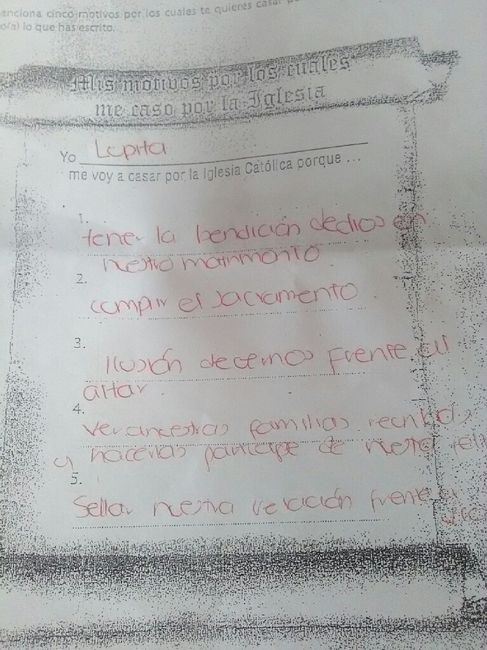 enciona cinco motivos por los cuales te quieres casar
o(a) lo que has escrito.
Mis motivos por los cuales
me caso por la Iglesia
Yo Lupita
me voy a casar por la Iglesia Católica porque ...
1.
tener la bendición de dios en
nestro matrimonio
2.
cumplir el sacramento
3.
Ilusión decernos frente al
altar.
4.
ver ancestras familias reunidas
y hacerlas participe de nestra
5.
Sellar nestra relación frente